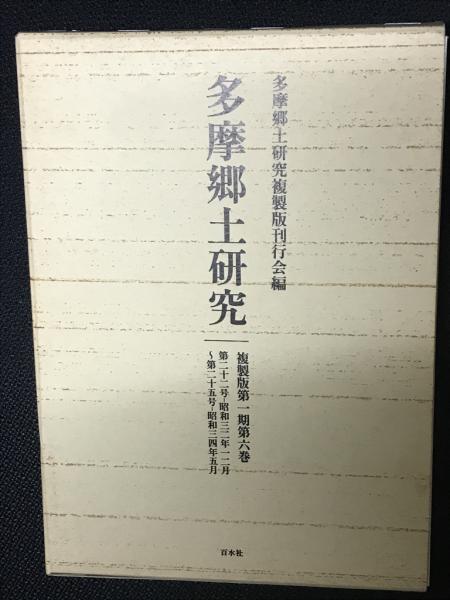 多摩郷土研究複製版刊行会編
多摩郷土研究
複製版第一期第六巻
第二十二号-昭和三二年一二月
〜第二十五号-昭和三四年五月
百水社